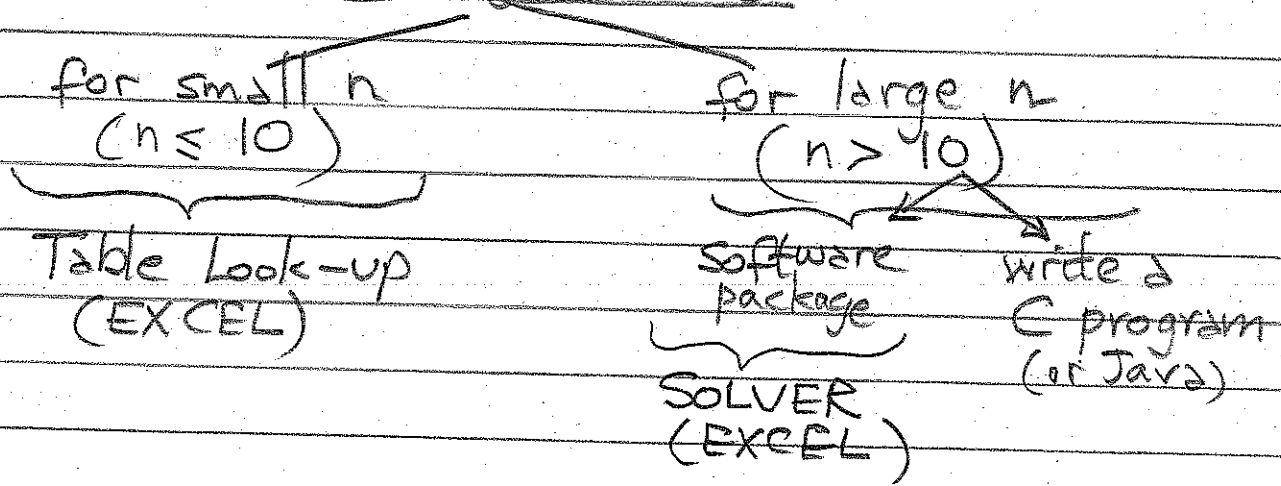 for small n
(n ≤ 10)
Table Look-up
(EXCEL)
for large n
(n > 10)
software
package
SOLVER
(EXCEL)
write a
C program
(or Java)